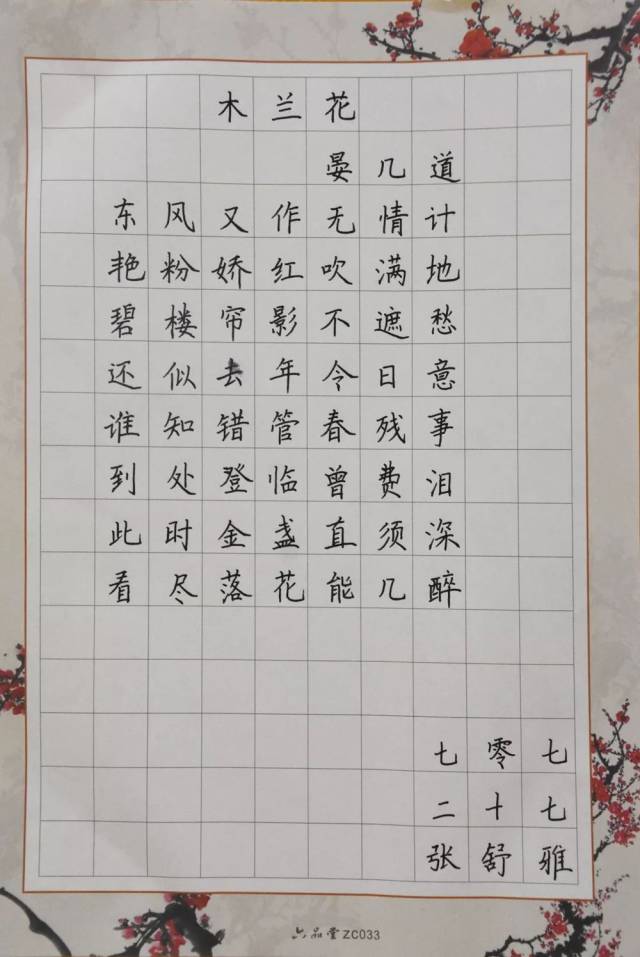 木兰花
晏几道
东风又作无情计
艳粉娇红吹满地
碧楼帘影不遮愁
还似去年今日意
谁知错管春残事
到处登临曾费泪
此时金盏直须深
看尽落花能几醉
七零七
二十七
张舒雅
六品堂 ZC033